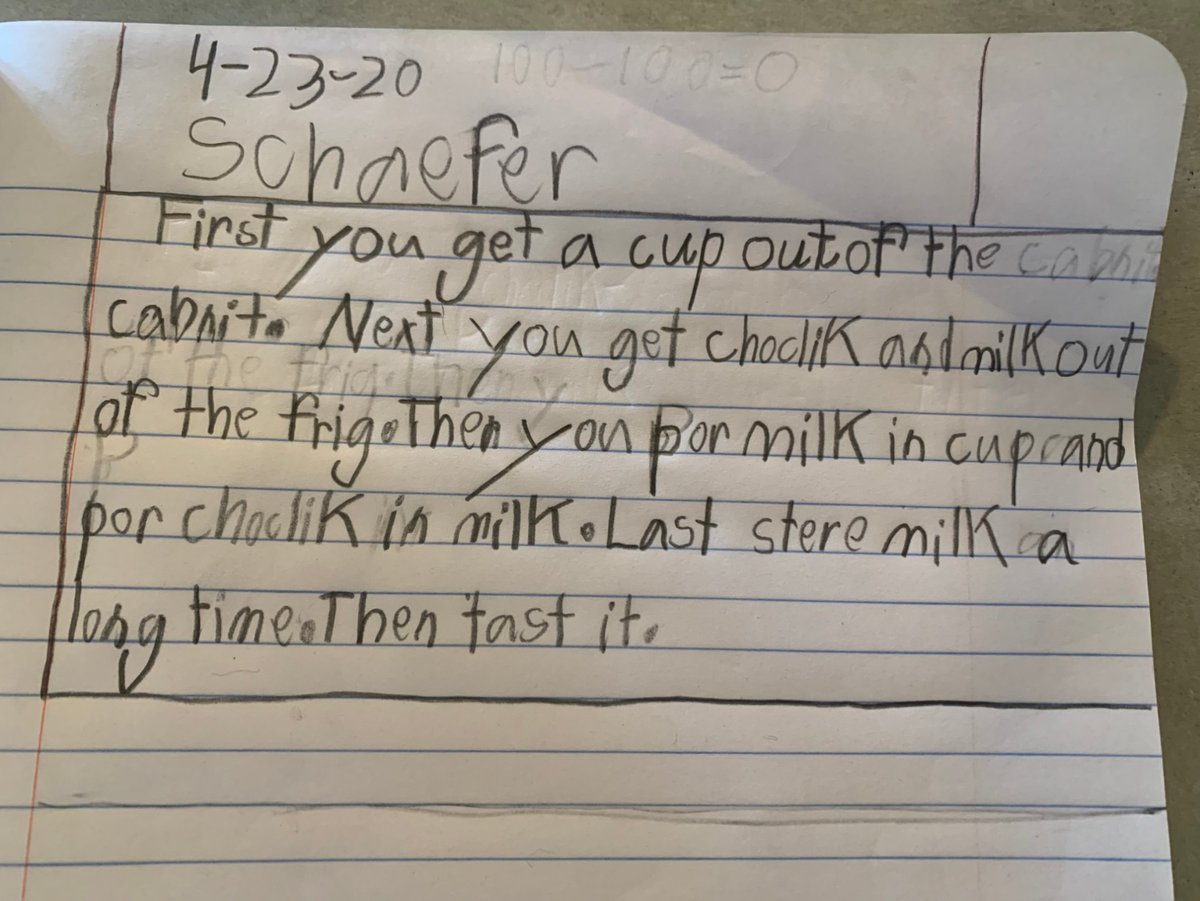 4-23-20 100-100=0
Schaefer
First you get a cup out of the cabnit
cabnit. Next you get choclik and milk out
of the frig. Then y
of the frig. Then you por milk in cup and
p
por choclik in milk. Last stere milk a
long time. Then tast it.